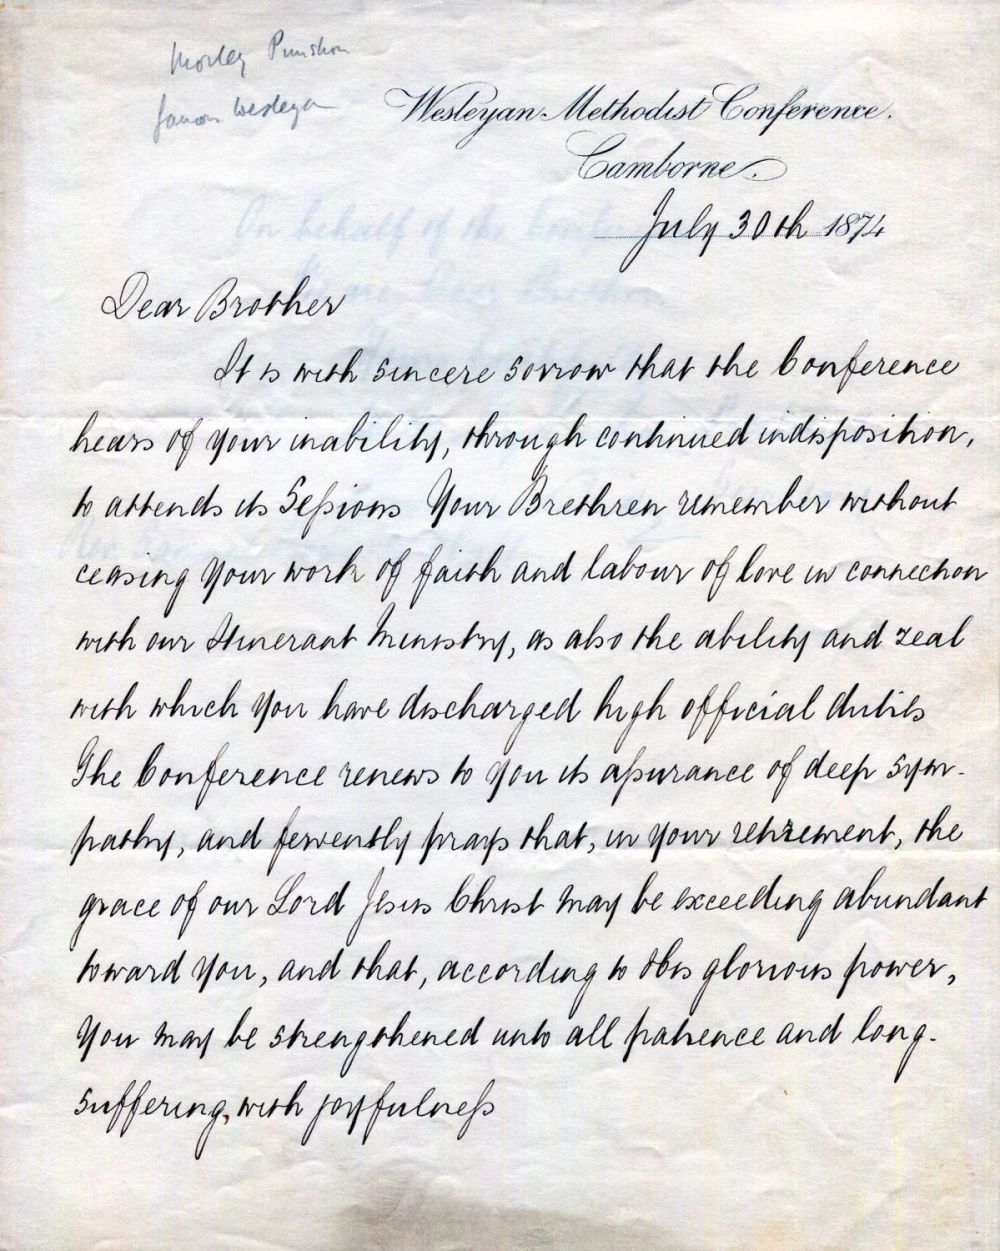 Morley Punshon
famous Wesleyan
Wesleyan-Methodist Conference.
Camborne.
July 30th 1874
Dear Brother
It is with sincere sorrow that the Conference
hears of your inability, through continued indisposition,
to attends its Sessions Your Brethren remember without
ceasing your work of faith and labour of love in connection
with our Itinerant Ministry, as also the ability and zeal
with which you have discharged high official duties
The Conference renews to you its assurance of deep sym-
pathy, and fervently prays that, in your retirement, the
grace of our Lord Jesus Christ may be exceeding abundant
toward you, and that, according to His glorious power,
you may be strengthened unto all patience and long-
suffering, with joyfulness